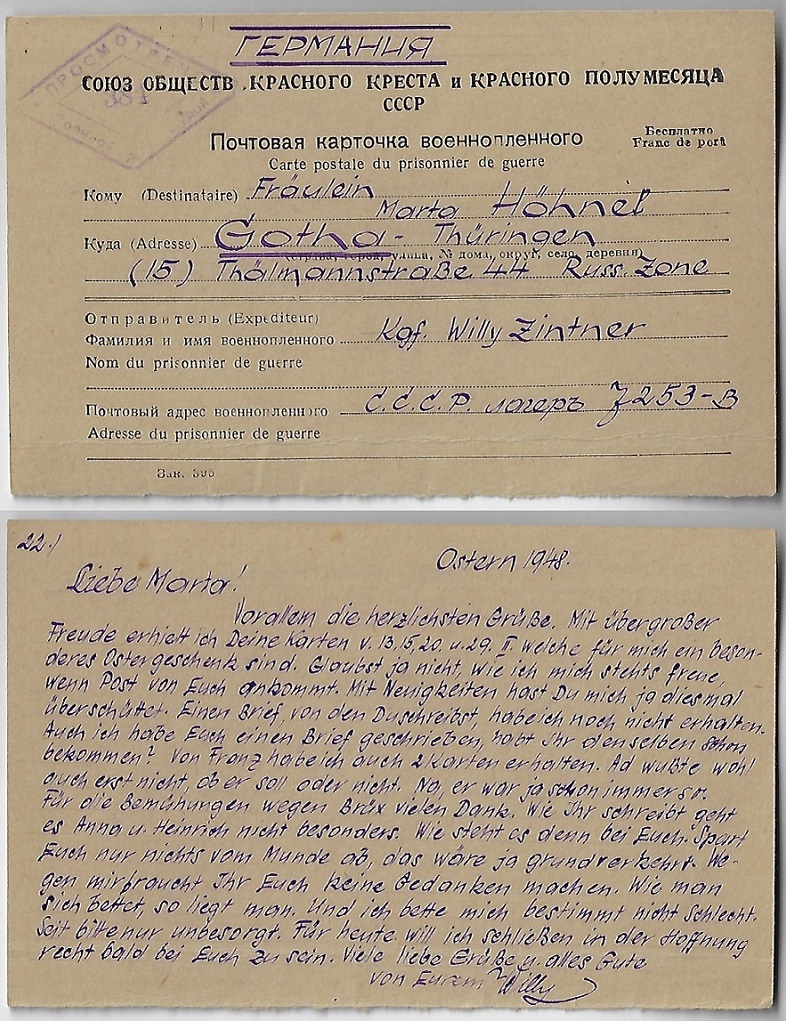 ГЕРМАНИЯ
ПРОСМОТРЕНО
СОЮЗ ОБЩЕСТВ КРАСНОГО КРЕСТА и КРАСНОГО ПОЛУМЕСЯЦА
СССР
Почтовая карточка военнопленного
Бесплатно
Franc de port
Carte postale du prisonnier de guerre
Кому (Destinataire) Fräulein
Marta Höhnel
Куда (Adresse) Gotha - Thüringen
(страна, город, улица, № дома, округ, село, деревня)
(15) Thälmannstraße 44 Russ. Zone
Отправитель (Expéditeur)
Фамилия и имя военнопленного Kgf. Willy Zintner
Nom du prisonnier de guerre
Почтовый адрес военнопленного С.С.С.Р. лагерь 7253-B
Adresse du prisonnier de guerre
Зак. 396
22.)
Ostern 1948.
Liebe Marta!
Vorallem die herzlichsten Grüße. Mit übergroßer
Freude erhielt ich Deine Karten v. 13, 15, 20. u. 29. II. welche für mich ein beson-
deres Ostergeschenk sind. Glaubst ja nicht, wie ich mich stehts freue,
wenn Post von Euch ankommt. Mit Neuigkeiten hast Du mich ja diesmal
überschüttet. Einen Brief, von den Du schreibst, habe ich noch nicht erhalten.
Auch ich habe Euch einen Brief geschrieben, habt Ihr denselben schon
bekommen? Von Franz habe ich auch 2 Karten erhalten. Ad wußte wohl
auch erst nicht, ob er soll oder nicht. Na, er war ja schon immer so.
Für die Bemühungen wegen Brüx vielen Dank. Wie Ihr schreibt geht
es Anna u. Heinrich nicht besonders. Wie steht es denn bei Euch. Spart
Euch nur nichts vom Munde ab, das wäre ja grundverkehrt. We-
gen mir braucht Ihr Euch keine Gedanken machen. Wie man
sich bettet, so liegt man. Und ich bette mich bestimmt nicht schlecht.
Seit bitte nur unbesorgt. Für heute will ich schließen in der Hoffnung
recht bald bei Euch zu sein. Viele liebe Grüße u. alles Gute
von Eurem Willy